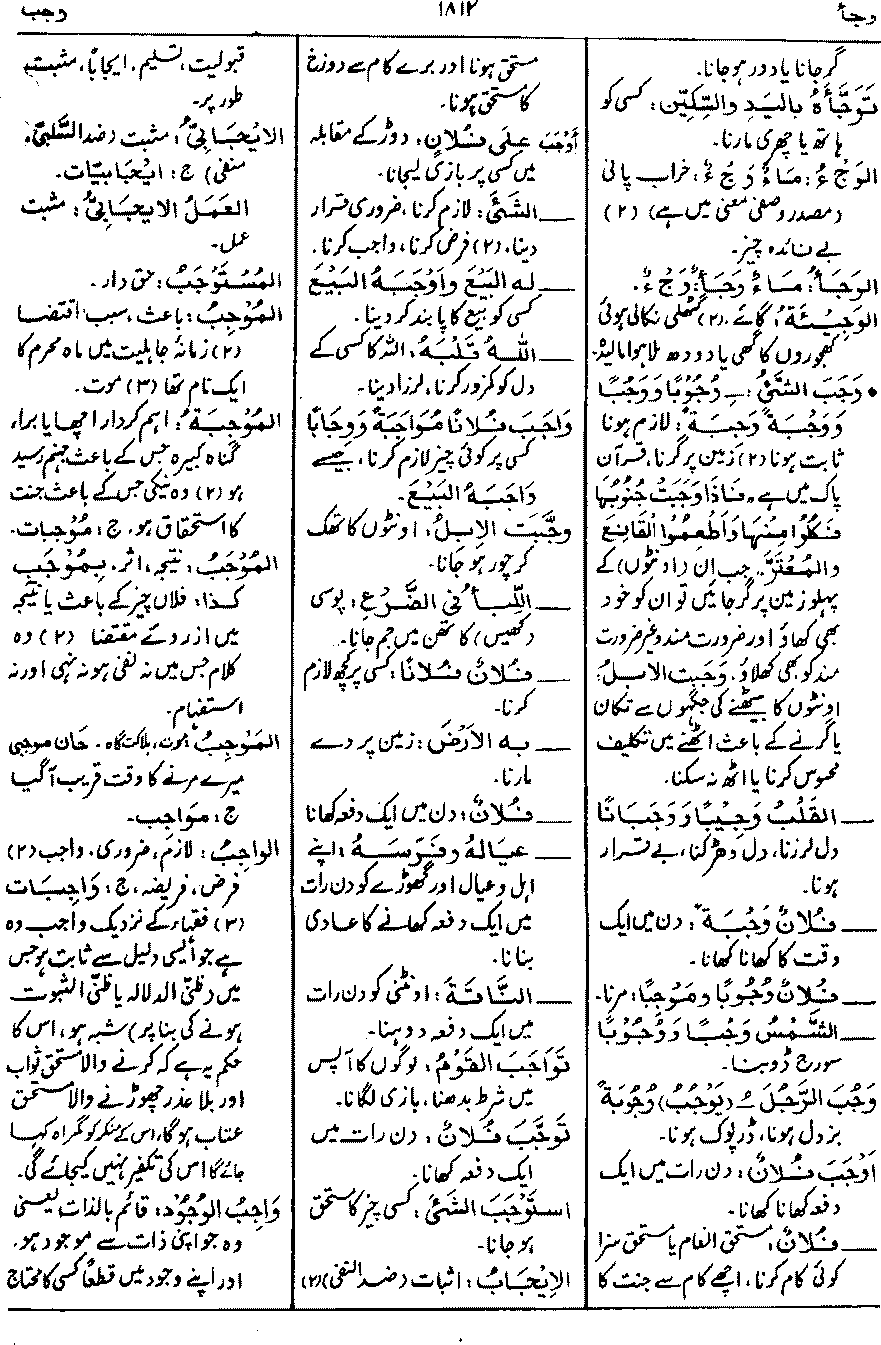 وجأ
۱۸۱۲
وجب
گرجانا یا دور ہوجانا۔
تَوَجَّأَهُ بِالْيَدِ والسِّكِّيْنِ: کسی کو
ہاتھ یا چھری مارنا۔
الوَجْءُ: مَاءٌ وَجْءٌ: خراب پانی
(مصدر وصفی معنی میں ہے) (۲)
بے فائدہ چیز۔
الوَجَأُ: مَاءٌ وَجَأٌ: وَجْءٌ۔
الوَجِيْئَةُ: گائے۔ (۲) گٹھلی نکالی ہوئی
کھجوروں کا گھی یا دودھ ملا ہوا مالیدہ
• وَجَبَ الشَّئُ ــِ وُجُوْبًا وَوَجْبًا
وَوَجْبَةً وَجِبَةً: لازم ہونا
ثابت ہونا (۲) زمین پر گرنا، قرآن
پاک میں ہے۔ فَاِذَا وَجَبَتْ جُنُوْبُهَا
فَكُلُوْا مِنْهَا وَاَطْعِمُوا الْقَانِعَ
والْمُعْتَرَّ۔ جب ان (اونٹوں) کے
پہلو زمین پر گر جائیں تو ان کو خود
بھی کھاؤ اور ضرورت مند و غیر ضرورت
مند کو بھی کھلاؤ۔ وَجَبَتِ الابِلُ:
اونٹوں کا بیٹھنے کی جگہوں سے تکان
یا گرنے کے باعث اٹھنے میں تکلیف
محسوس کرنا یا اٹھ نہ سکنا۔
ــــ القَلْبُ وَجِيْبًا وَوَجَبَانًا
دل لرزنا، دل دھڑکنا، بے قرار
ہونا۔
ــــ فُلَانٌ وَجْبَةً: دن میں ایک
وقت کا کھانا کھانا۔
ــــ فُلَانٌ وُجُوْبًا ومَوْجِبًا: مرنا۔
ــــ الشَّمْسُ وَجْبًا وَوُجُوْبًا
سورج ڈوبنا۔
وَجُبَ الرَّجُلُ ــُ (يَوْجُبُ) وُجُوْبَةً
بزدل ہونا، ڈرپوک ہونا۔
اَوْجَبَ فُلَانٌ: دن رات میں ایک
دفعہ کھانا کھانا۔
ــــ فُلَانٌ: مستحق انعام یا مستحق سزا
کوئی کام کرنا، اچھے کام سے جنت کا
مستحق ہونا اور برے کام سے دوزخ
کا مستحق ہونا۔
اَوْجَبَ عَلٰى فُلَانٍ: دوڑ کے مقابلہ
میں کسی پر بازی لیجانا۔
ــــ الشَّئَ: لازم کرنا، ضروری قرار
دینا، (۲) فرض کرنا، واجب کرنا۔
ــــ له البَيْعَ واَوْجَبَهُ البَيْعَ
کسی کو بیع کا پابند کر دینا۔
ــــ اللّٰهُ قَلْبَهُ: اللہ کا کسی کے
دل کو کمزور کرنا، لرزا دینا۔
وَاجَبَ فُلَانًا مُوَاجَبَةً وَوِجَابًا
کسی پر کوئی چیز لازم کرنا، جیسے
وَاجَبَهُ البَيْعَ۔
وَجَّبَتِ الاِبِلُ: اونٹوں کا تھک
کر چور ہو جانا۔
ــــ اللِّبَأُ فِى الضَّرْعِ: پیوسی
(کھیس) کا تھن میں جم جانا۔
ــــ فُلَانٌ فُلَانًا: کسی پر کچھ لازم
کرنا۔
ــــ به الاَرْضَ: زمین پر دے
مارنا۔
ــــ فُلَانٌ: دن میں ایک دفعہ کھانا
ــــ عِيَالَهُ وفَرَسَهُ: اپنے
اہل و عیال اور گھوڑے کو دن رات
میں ایک دفعہ کھانے کا عادی
بنانا۔
ــــ النَّاقَةَ: اونٹنی کو دن رات
میں ایک دفعہ دوہنا۔
تَوَاجَبَ القَوْمُ: لوگوں کا آپس
میں شرط بدھنا، بازی لگانا۔
تَوَجَّبَ فُلَانٌ: دن رات میں
ایک دفعہ کھانا۔
اسْتَوْجَبَ الشَّئَ: کسی چیز کا مستحق
ہو جانا۔
الاِيْجَابُ: اثبات (ضد النفی) (۲)
قبولیت، تسلیم، ایجاباً، مثبت
طور پر۔
الايْجَابِىُّ: مثبت (ضد السَّلْبِىّ،
منفی) ج: ايْجَابِيَّات۔
العَمَلُ الايجَابِىُّ: مثبت
عمل۔
المُسْتَوْجِبُ: حق دار۔
المُوْجِبُ: باعث، سبب، اقتضا
(۲) زمانۂ جاہلیت میں ماہ محرم کا
ایک نام تھا (۳) موت۔
المُوْجِبَةُ: اہم کردار اچھا یا برا،
گناہ کبیرہ جس کے باعث جہنم رسید
ہو (۲) وہ نیکی جس کے باعث جنت
کا استحقاق ہو۔ ج: مُوْجِبات۔
المُوْجَبُ: نتیجہ، اثر۔ بِمُوْجَبِ
كَذا: فلاں چیز کے باعث یا نتیجہ
میں از روئے مقتضا (۲) وہ
کلام جس میں نہ نفی ہو نہ نہی اور نہ
استفہام۔
المَوْجِبُ: موت، ہلاکت گاہ۔ حَانَ موجبى
میرے مرنے کا وقت قریب آگیا
ج: مَوَاجِب۔
الواجِبُ: لازم، ضروری، واجب (۲)
فرض، فریضہ، ج: وَاجِبَات
(۳) فقہاء کے نزدیک واجب وہ
ہے جو ایسی دلیل سے ثابت ہو جس
میں (ظنّی الدلالہ یا ظنّی الثبوت
ہونے کی بنا پر) شبہ ہو، اس کا
حکم یہ ہے کہ کرنے والا مستحق ثواب
اور بلا عذر چھوڑنے والا مستحق
عتاب ہوگا، اس کے منکر کو گمراہ کہا
جائے گا اس کی تکفیر نہیں کیجائے گی۔
وَاجِبُ الوُجُوْد: قائم بالذات یعنی
وہ جو اپنی ذات سے موجود ہو۔
اور اپنے وجود میں قطعاً کسی کا محتاج